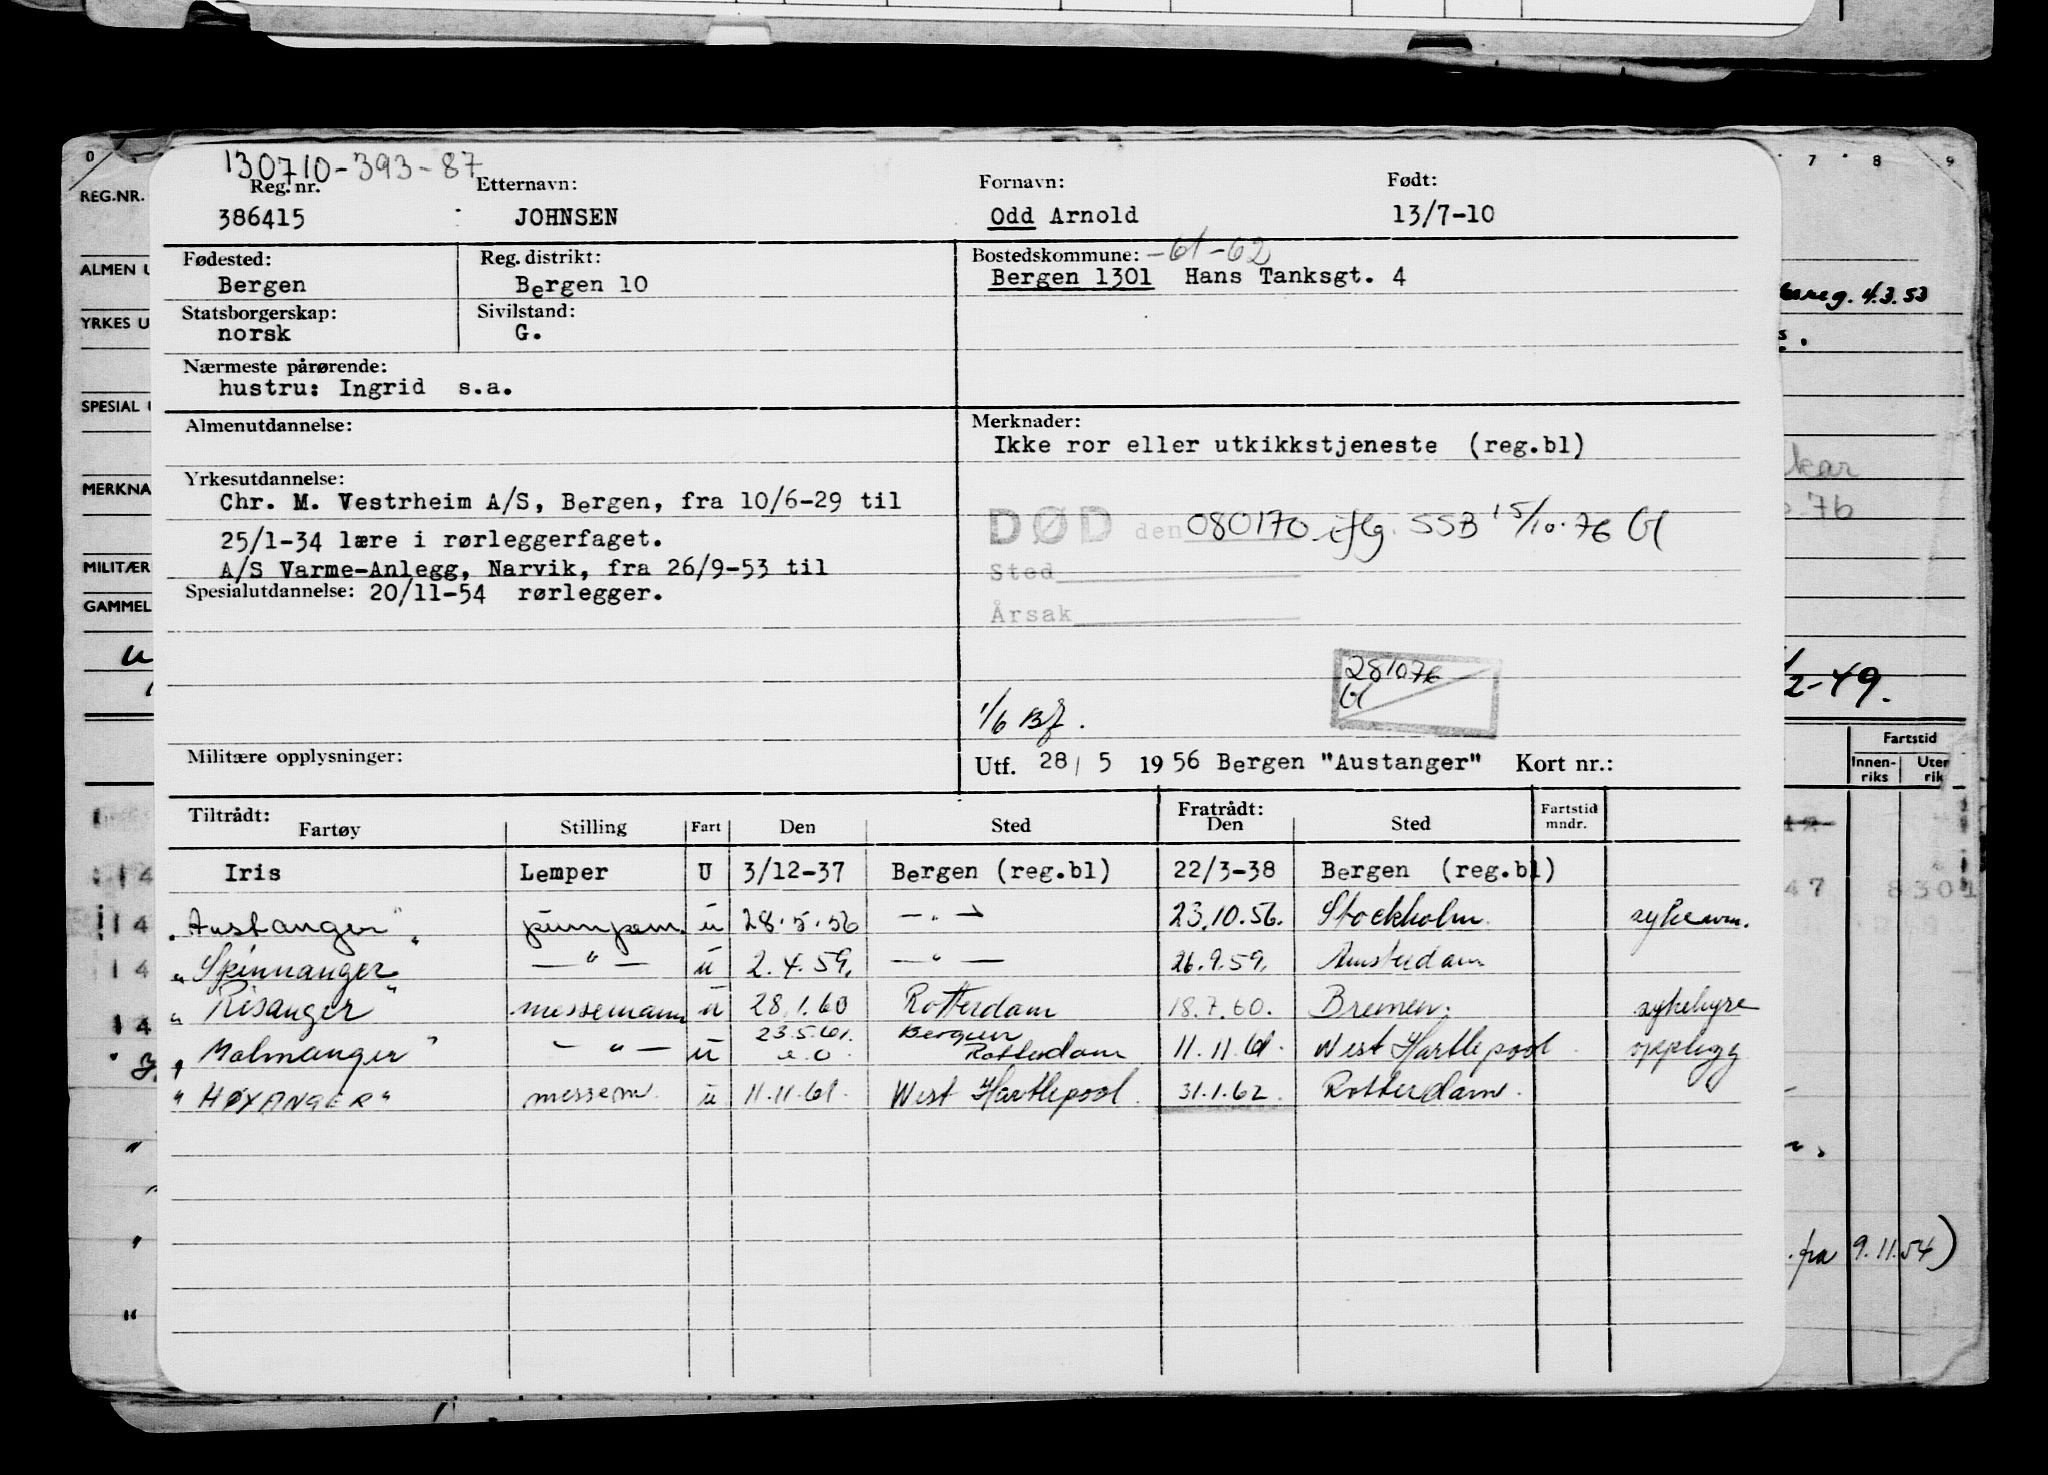 130710-393-87
Reg. nr. Etternavn: Fornavn: Født:
386415 JOHNSEN Odd Arnold 13/7-10
Fødested: Reg. distrikt: Bostedskommune: -61-62
Bergen Bergen 10 Bergen 1301 Hans Tanksgt. 4
Statsborgerskap: Sivilstand:
norsk G.
Nærmeste pårørende:
hustru: Ingrid s.a.
Almenutdannelse: Merknader:
Ikke ror eller utkikkstjeneste (reg.bl)
Yrkesutdannelse:
Chr. M. Vestrheim A/S, Bergen, fra 10/6-29 til
25/1-34 lære i rørleggerfaget.
A/S Varme-Anlegg, Narvik, fra 26/9-53 til
Spesialutdannelse: 20/11-54 rørlegger.
DØD den 080170 iflg. SSB 15/10.76 Gl
Sted
Årsak
281076
Gl
1/6 Bf.
Militære opplysninger: Utf. 28/5 1956 Bergen "Austanger" Kort nr.:
Tiltrådt: Fratrådt:
Fartøy Stilling Fart Den Sted Den Sted Fartstid mndr.
Iris Lemper U 3/12-37 Bergen (reg.bl) 22/3-38 Bergen (reg.bl)
"Austanger" pumpem. u 28.5.56 — " — 23.10.56. Stockholm.
"Spinnanger" — " — u 2.4.59. — " — 26.9.59. Amsterdam
"Risanger" messemann u 28.1.60 Rotterdam 18.7.60. Bremen. sykehyre
23.5.61. Bergen
"Malmanger" — " — u e.o. Rotterdam 11.11.61. West Hartlepool opplegg
"HØYANGER" messem. u 11.11.61. West Hartlepool. 31.1.62. Rotterdam.
0 7 8 9
REG.NR.
ALMEN U
YRKES U
SPESIAL U
MERKNA
MILITÆR
GAMMEL
reg. 4.3.53
2-49.
Fartstid
Innenriks Uten rik
47 8301
14
14
14
14
. fra 9.11.54)